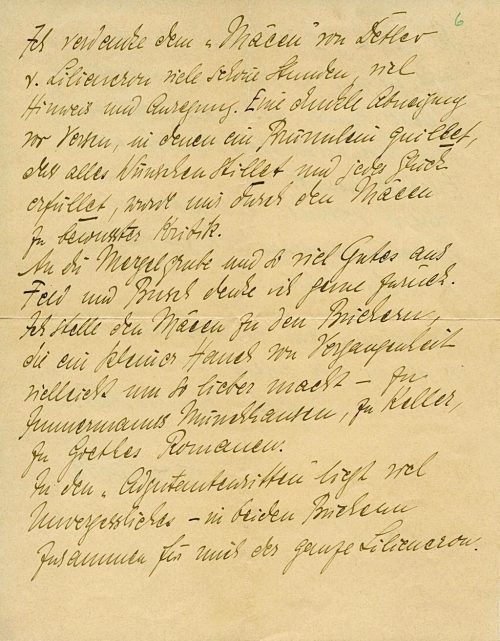 6
Ich verdanke dem „Mäcen" von Detlev
v. Liliencron viele schöne Stunden, viel
Hinweis und Anregung. Eine dunkle Abneigung
vor Versen, in denen ein Brünnlein quillet,
das alles Wünschen stillet und jedes Glück
erfüllet, wurde mir durch den Mäcen
zu bewusster Kritik.
An die Mergelgrube und so viel Gutes aus
Feld und Busch denke ich gerne zurück.
Ich stelle den Mäcen zu den Büchern,
die ein kleiner Hauch von Vergangenheit
vielleicht um so lieber macht – zu
Immermanns Münchhausen, zu Keller,
zu Goethes Romanen.
In den „Adjutantenritten" liegt viel
Unvergessliches – in beiden Büchern
zusammen für mich der ganze Liliencron.